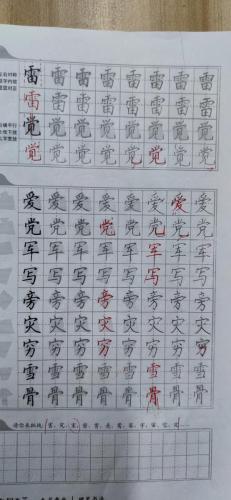 雷雷雷雷雷雷雷雷
雷雷雷雷雷雷雷雷
觉觉觉觉觉觉觉觉
觉觉觉觉觉觉觉觉
爱爱爱爱爱爱爱爱
党党党党党党党党
军军军军军军军军
写写写写写写写写
旁旁旁旁旁旁旁旁
灾灾灾灾灾灾灾灾
穷穷穷穷穷穷穷穷
雪雪雪雪雪雪雪雪
骨骨骨骨骨骨骨骨